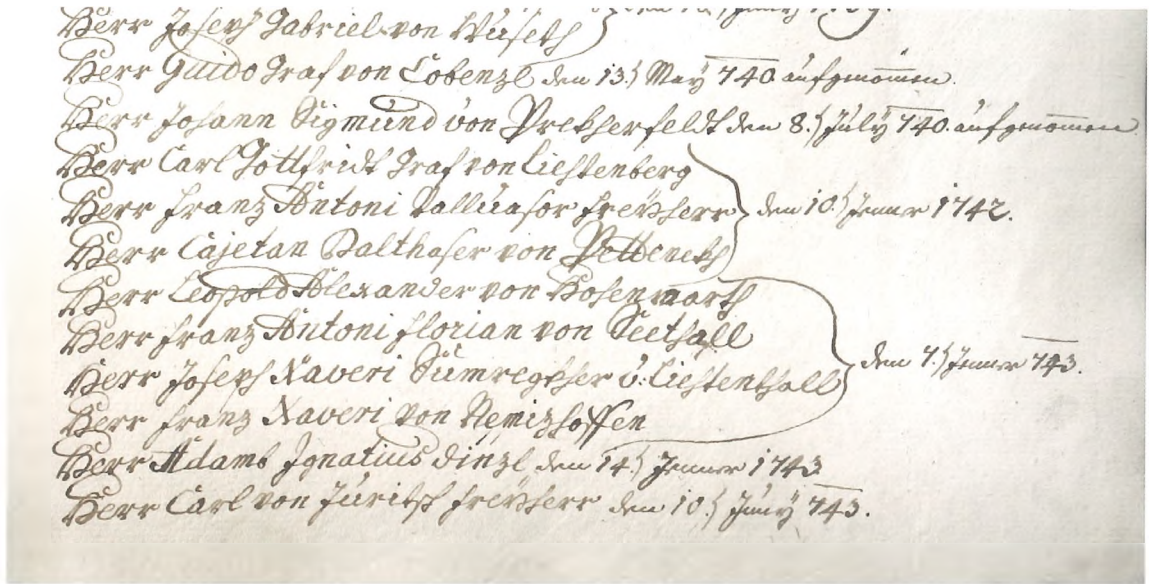 Herr Joseph Gabriel von
Herr Guido Graf von Cobenzl den 13.) May 740 aufgenom̅en.
Herr Johann Sigmund von den 8.) July 740. aufgenom̅en
Herr Carl Gottfridt Graf von Liechtenberg
Herr Franz Antoni Valluasor Freyherr
den 10.) Jenner 1742.
Herr Cajetan Balthasar von
Herr Leopold Alexander von Hohenwarth
Herr Franz Antoni Florian von Seethall
dem 7.) Jenner 743.
Herr Joseph Xaveri v: Liechtenthall
Herr Franz Xaveri von Nemizhoffen
Herr Adamb Ignatius Dinzl den 14.) Jenner 1743
Herr Carl von Juritsch Freyherr den 10.) Juny 743.